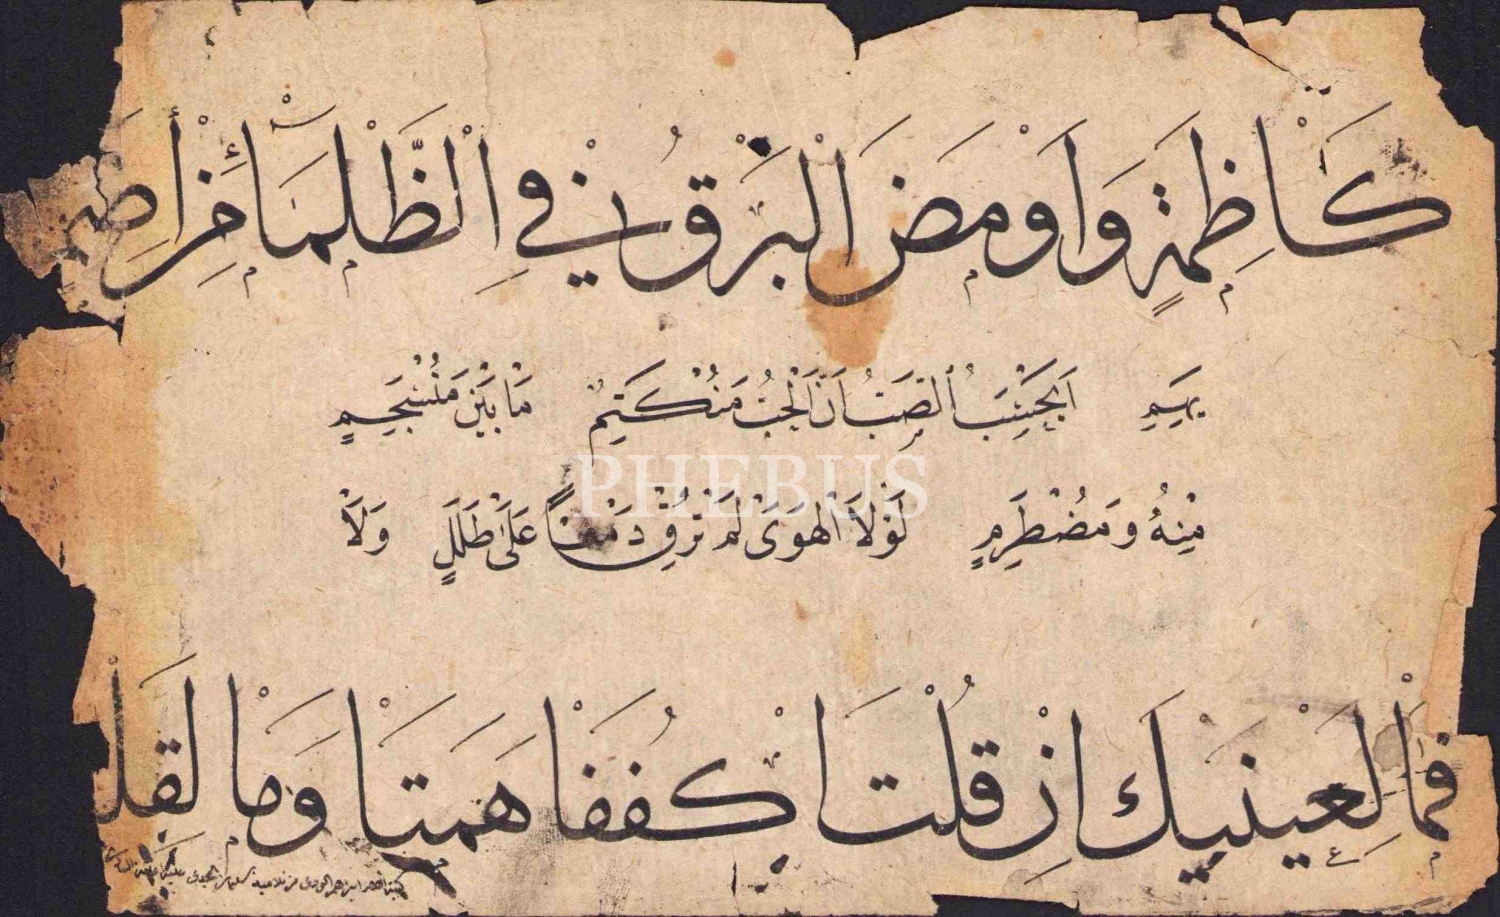 كَاظِمَةٍ وَاَوْمَضَ الْبَرْقُ فِي الْظَّلْمَاءِ مِنْ أِضَمِ
يَهِمِ اَيَحْسَبُ الصَّبُّ اَنَّ الْحُبَّ مُنْكَتِمٌ مَا بَيْنَ مُنْسَجِمٍ
PHEBUS
مِنْهُ وَمُضْطَرِمٍ لَوْلَا الْهَوَىٰ لَمْ تُرِقْ دَمْعًا عَلَىٰ طَلَلٍ وَلَا
فَمَا لِعَيْنَيْكَ اِنْ قُلْتَ اكْفُفَا هَمَتَا وَمَا لِقَلْ